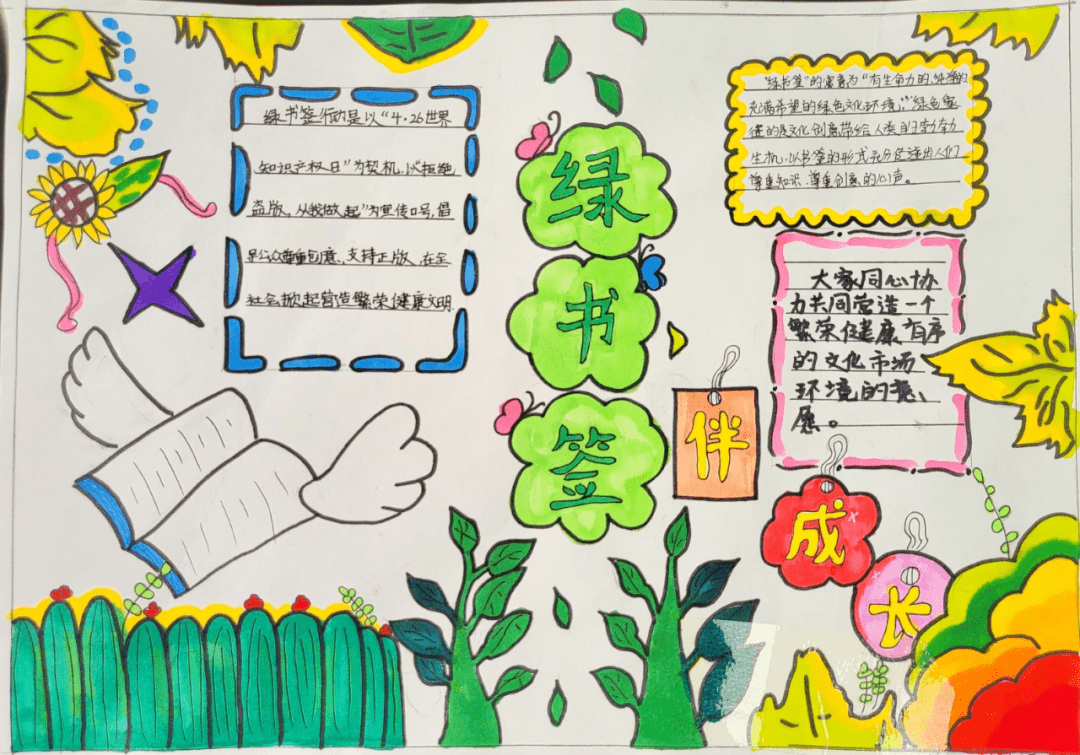 绿书签行动是以“4·26世界
知识产权日”为契机,以“拒绝
盗版,从我做起”为宣传口号,倡
导公众尊重创意,支持正版,在全
社会掀起营造繁荣健康文明
绿
书
签
伴
成
长
“绿书签”的寓意为“有生命力的,纯净的
充满希望的绿色文化环境,”“绿色象
的是文化创意带给人类的勃勃
生机,以书签的形式充分达出人们
尊重知识、尊重创意的心声。
大家同心协
力共同营造一个
繁荣健康有序
的文化市场
环境的意
愿。